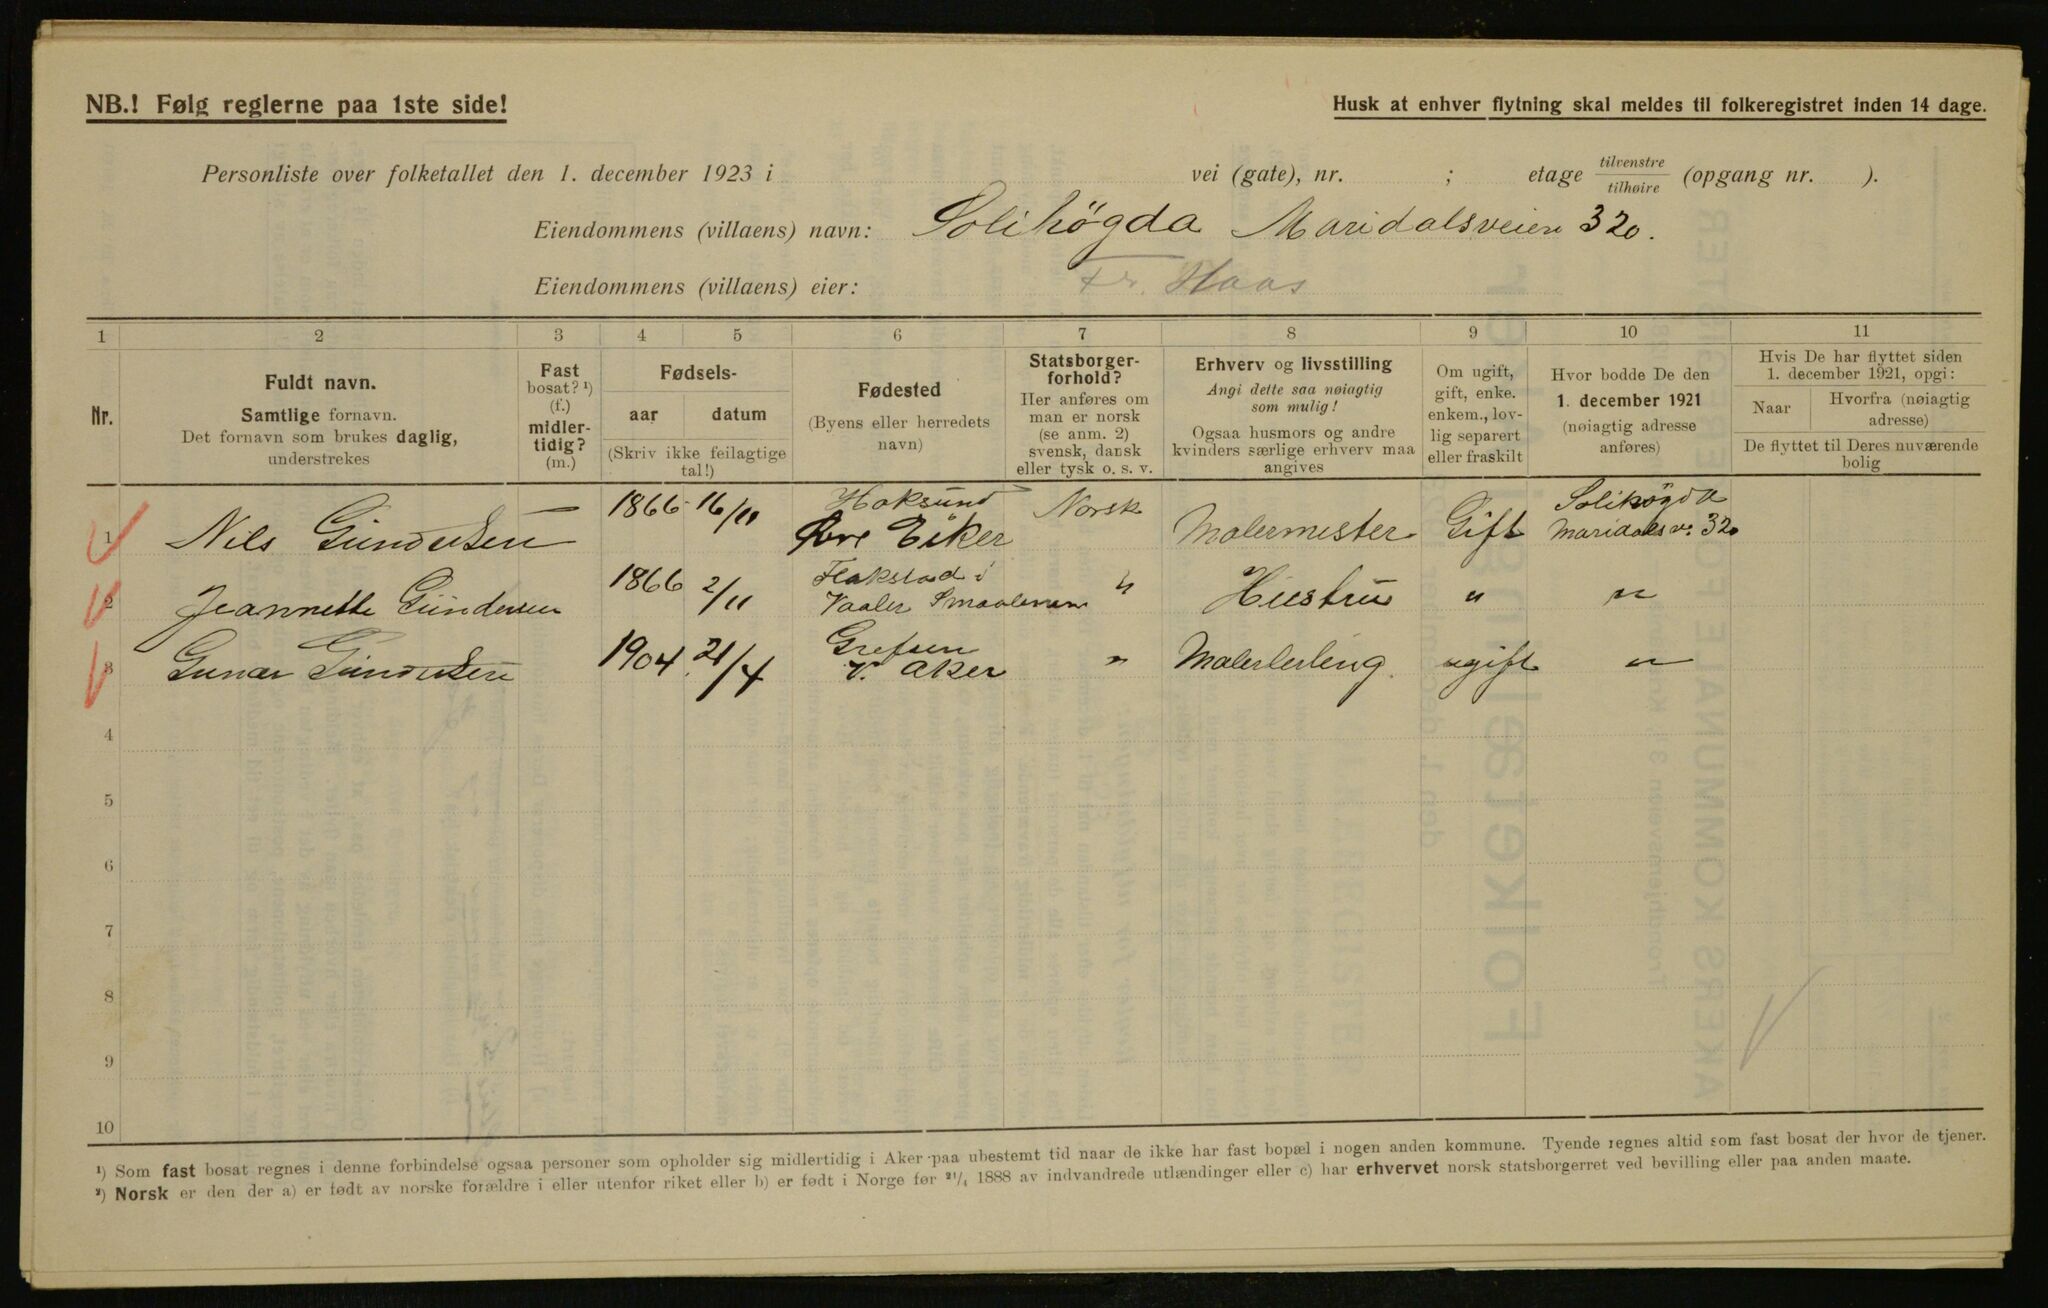 NB.! Følg reglerne paa 1ste side!
Husk at enhver flytning skal meldes til folkeregistret inden 14 dage.
Personliste over folketallet den 1. december 1923 i vei (gate), nr. ; etage tilvenstre / tilhøire (opgang nr. ).
Eiendommens (villaens) navn: Solihögda Maridalsveien 320.
Eiendommens (villaens) eier: Fr. Haas
1 2 3 4 5 6 7 8 9 10 11
Nr.
Fuldt navn.
Samtlige fornavn.
Det fornavn som brukes daglig,
understrekes
Fast
bosat? ¹)
(f.)
midler-
tidig?
(m.)
Fødsels-
aar datum
(Skriv ikke feilagtige
tal!)
Fødested
(Byens eller herredets
navn)
Statsborger-
forhold?
Her anføres om
man er norsk
(se anm. 2)
svensk, dansk
eller tysk o. s. v.
Erhverv og livsstilling
Angi dette saa nøiagtig
som mulig!
Ogsaa husmors og andre
kvinders særlige erhverv maa
angives
Om ugift,
gift, enke.
enkem., lov-
lig separert
eller fraskilt
Hvor bodde De den
1. december 1921
(nøiagtig adresse
anføres)
Hvis De har flyttet siden
1. december 1921, opgi:
Naar
Hvorfra (nøiagtig
adresse)
De flyttet til Deres nuværende
bolig
1 Nils Gundersen 1866 16/11 Hoksund Øvre Eiker Norsk Malermester Gift Solihögda Maridalsv. 320
2 Jeannette Gundersen 1866 2/11 Flakstad i Vaaler Smaalenene " Hustru " "
3 Gunar Gundersen 1904. 21/4 Grefsen V. Aker " Malerlerling. ugift "
4
5
6
7
8
9
10
¹) Som fast bosat regnes i denne forbindelse ogsaa personer som opholder sig midlertidig i Aker paa ubestemt tid naar de ikke har fast bopæl i nogen anden kommune. Tyende regnes altid som fast bosat der hvor de tjener.
²) Norsk er den der a) er født av norske forældre i eller utenfor riket eller b) er født i Norge før ²¹/₄ 1888 av indvandrede utlændinger eller c) har erhvervet norsk statsborgerret ved bevilling eller paa anden maate.